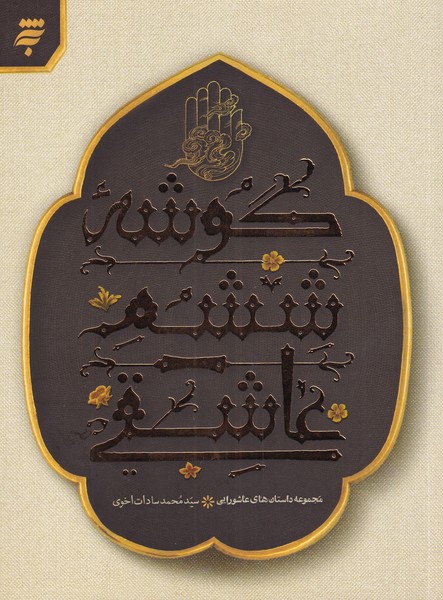 به نشر
گوشهٔ
ششم
عاشقی
مجموعه داستان‌های عاشورایی سیّد مُحمد سادات اخوی